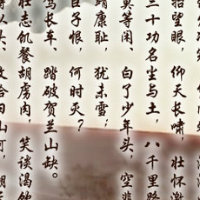 抬望眼，仰天长啸，壮怀激
三十功名尘与土，八千里路
莫等闲、白了少年头，空悲
靖康耻，犹未雪；
臣子恨，何时灭？
驾长车、踏破贺兰山缺。
壮志饥餐胡虏肉，笑谈渴饮
头、收拾旧山河，朝天